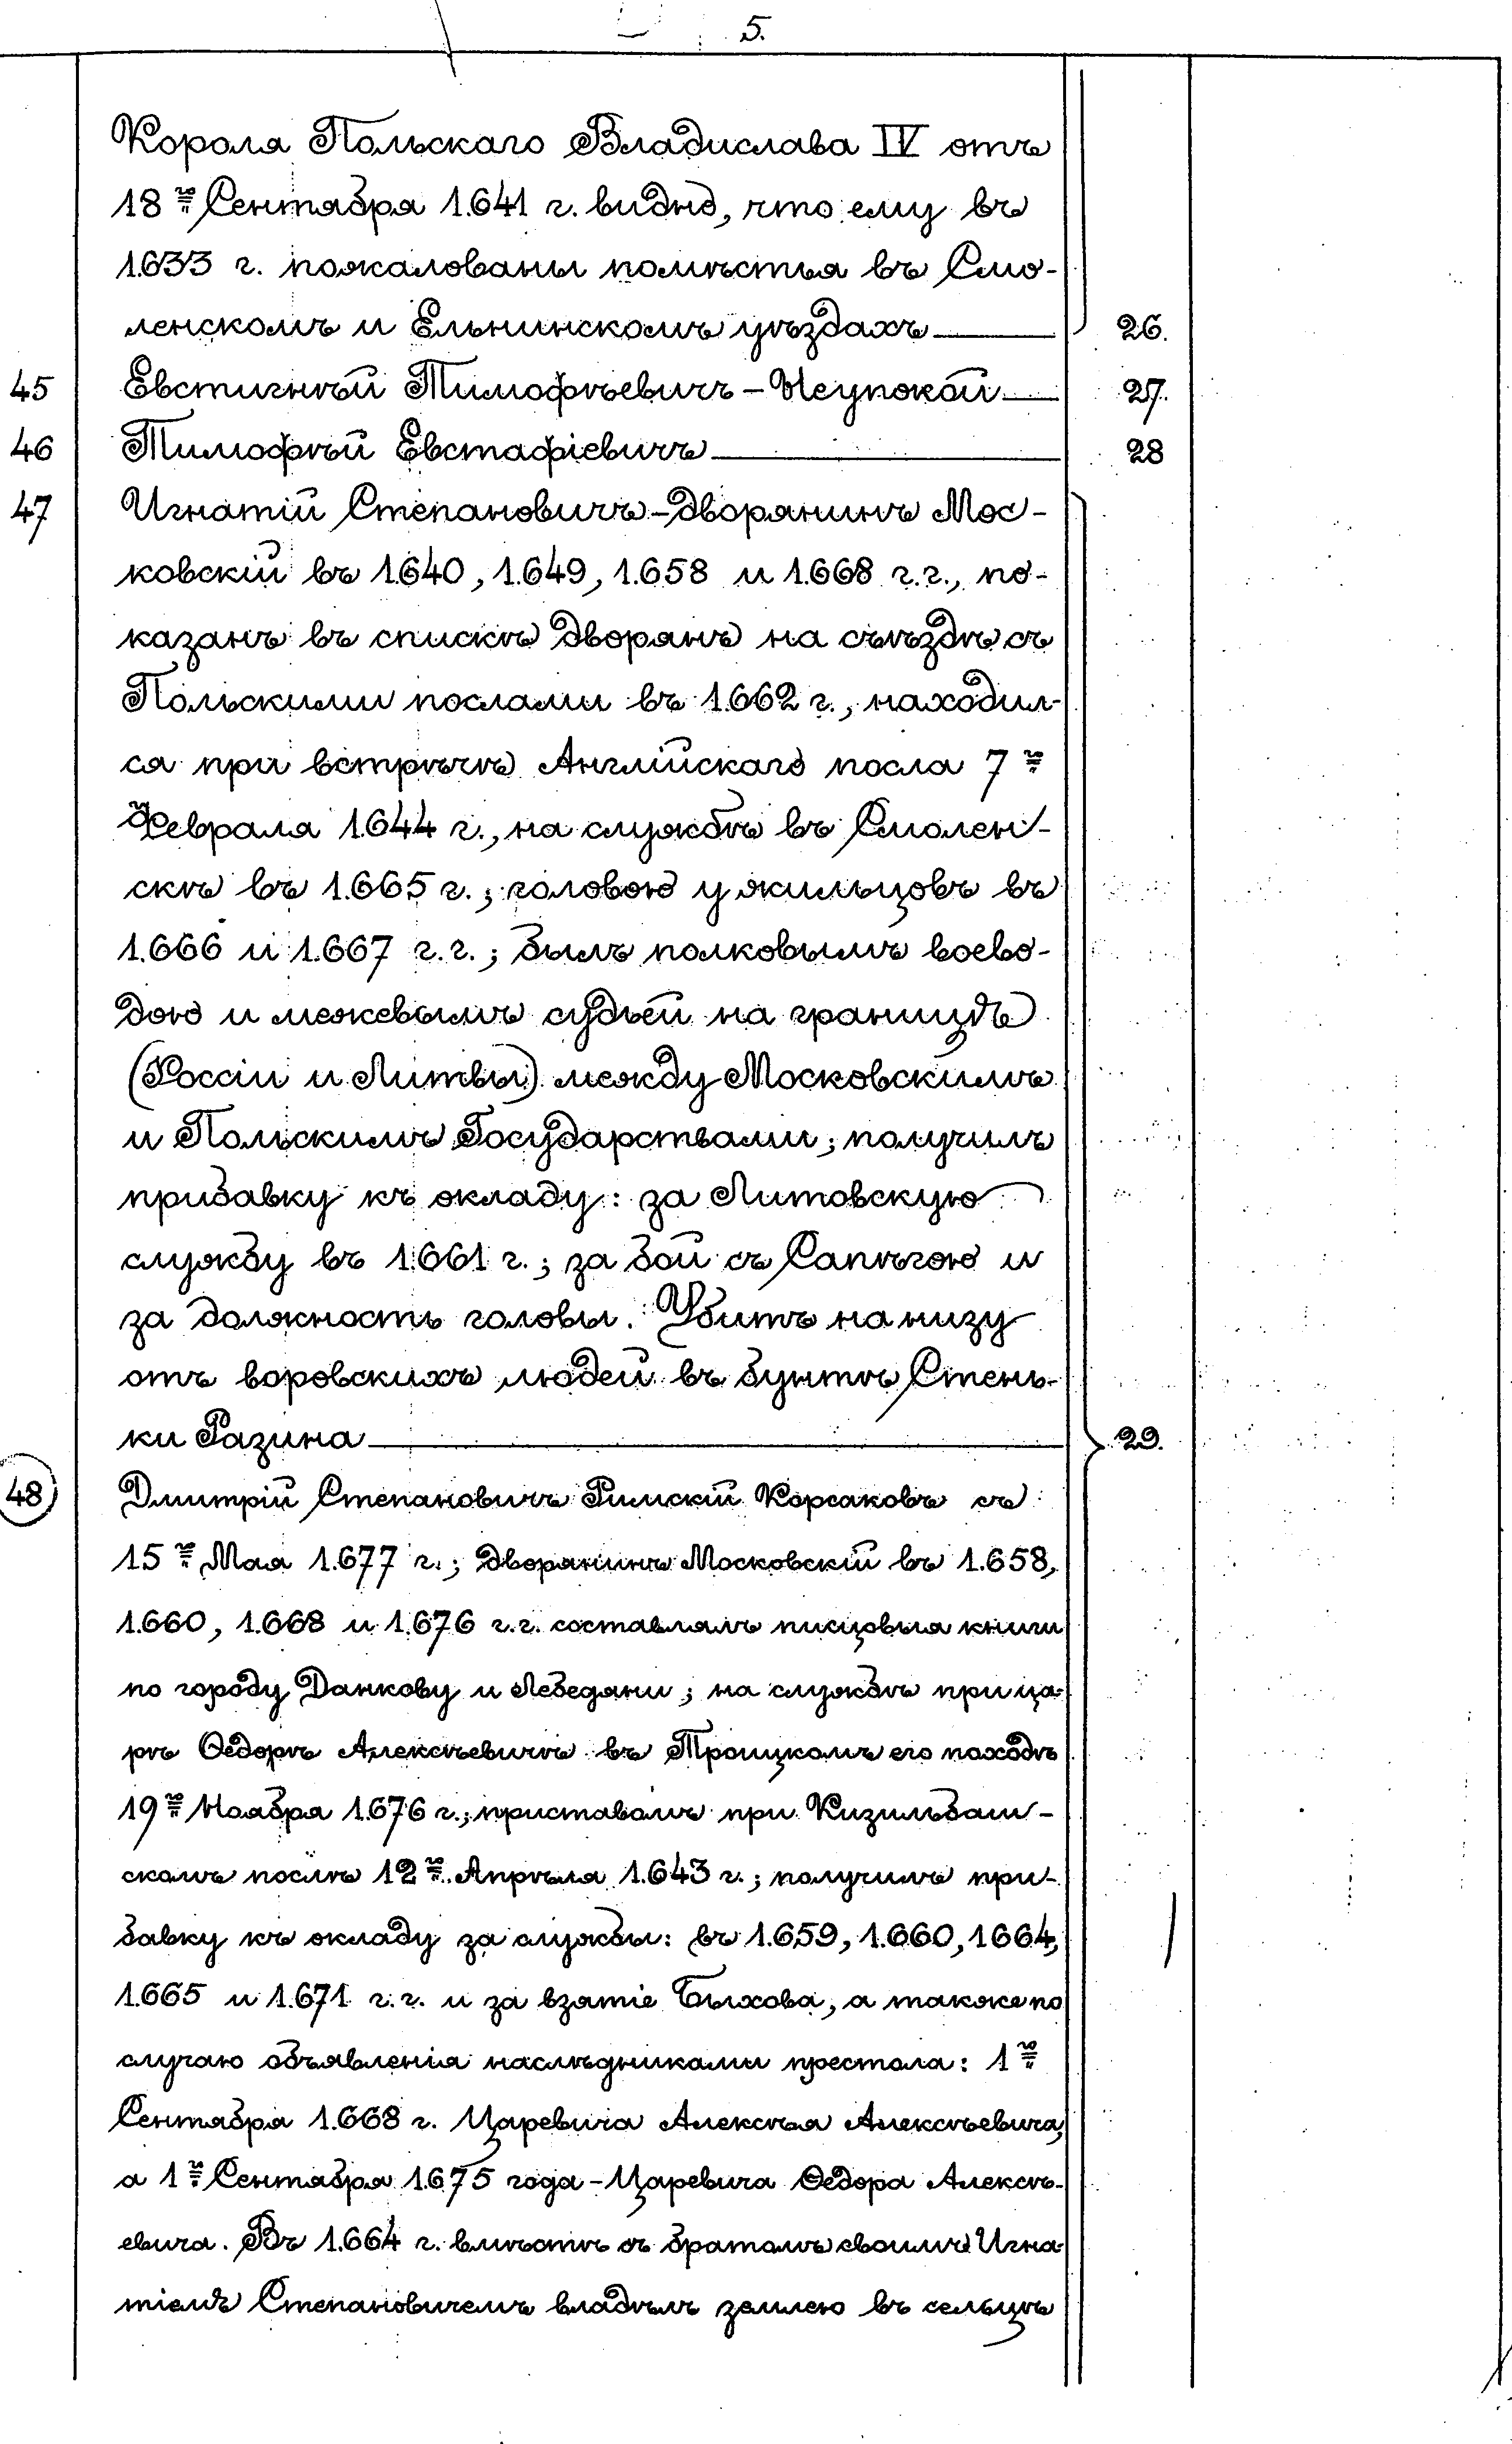 5.
Короля Польскаго Владислава IV отъ
18го Сентября 1641 г. видно, что ему въ
1633 г. пожалованы помѣстья въ Смо-
ленскомъ и Ельнинскомъ уѣздахъ 26.
45 Евстигнѣй Тимофѣевичъ - Неупокой 27.
46 Тимофѣй Евстафіевичъ 28
47 Игнатій Степановичъ - дворянинъ Мос-
ковскій въ 1640, 1649, 1658 и 1668 г.г., по-
казанъ въ спискѣ дворянъ на съѣздѣ съ
Польскими послами въ 1662 г., находил-
ся при встрѣчѣ Англійскаго посла 7го
Февраля 1644 г., на службѣ въ Смолен-
скѣ въ 1665 г.; головою у жильцовъ въ
1666 и 1667 г.г.; былъ полковымъ воево-
дою и межевымъ судьей на границѣ
(Россіи и Литвы) между Московскимъ
и Польскимъ Государствами; получилъ
прибавку къ окладу: за Литовскую
службу въ 1661 г.; за бой съ Сапѣгою и
за должность головы. Убитъ на низу
отъ воровскихъ людей въ бунтѣ Стень-
ки Разина 29.
48 Дмитрій Степановичъ Римскій Корсаковъ съ
15го Мая 1677 г.; дворянинъ Московскій въ 1658,
1660, 1668 и 1676 г.г. составлялъ писцовыя книги
по городу Данкову и Лебедяни; на службѣ при ца-
рѣ Ѳедорѣ Алексѣевичѣ въ Троицкомъ его походѣ
19го Ноября 1676 г.; приставомъ при Кизильбаш-
скомъ послѣ 12го Апрѣля 1643 г.; получилъ при-
бавку къ окладу за службы: въ 1659, 1660, 1664,
1665 и 1671 г.г. и за взятіе Быхова, а также по
случаю объявленія наслѣдниками престола: 1го
Сентября 1668 г. Царевича Алексѣя Алексѣевича,
а 1го Сентября 1675 года - Царевича Ѳедора Алексѣ-
евича. Въ 1664 г. вмѣстѣ съ братомъ своимъ Игна-
тіемъ Степановичемъ владѣлъ землею въ сельцѣ